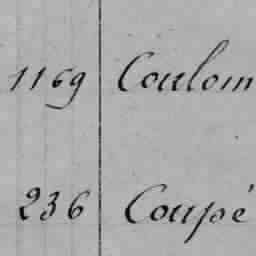 1169 Coulom
236 Coupé